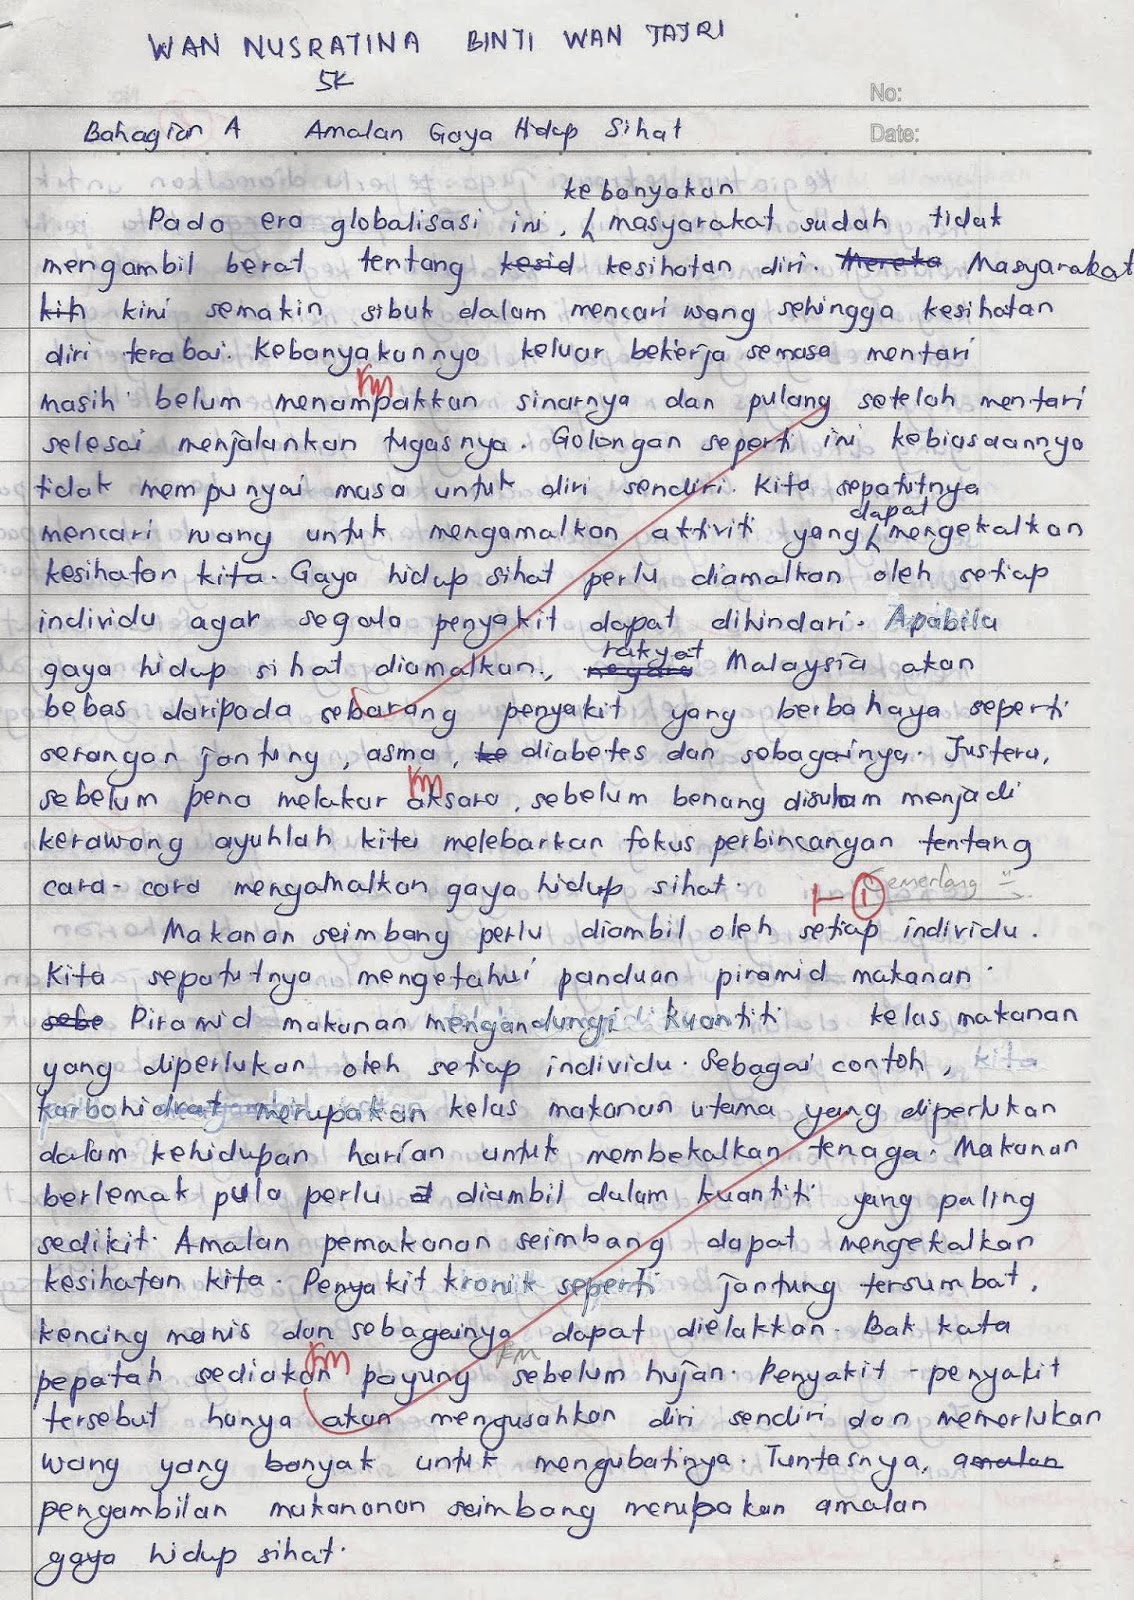 WAN NUSRATINA BINTI WAN TAJRI
5K
No:
Bahagian A Amalan Gaya Hidup Sihat
Date:
kebanyakan
Pada era globalisasi ini, masyarakat sudah tidak
mengambil berat tentang kesid kesihatan diri. Mereka Masyarakat
kita kini semakin sibuk dalam mencari wang sehingga kesihatan
diri terabai. Kebanyakannya keluar bekerja semasa mentari
masih belum menampakkan sinarnya dan pulang setelah mentari
selesai menjalankan tugasnya. Golongan seperti ini kebiasaannya
tidak mempunyai masa untuk diri sendiri. Kita sepatutnya
dapat
mencari ruang untuk mengamalkan aktiviti yang mengekalkan
kesihatan kita. Gaya hidup sihat perlu diamalkan oleh setiap
individu agar segala penyakit dapat dihindari. Apabila
rakyat
gaya hidup sihat diamalkan, negara Malaysia akan
bebas daripada sebarang penyakit yang berbahaya seperti
serangan jantung, asma, ke diabetes dan sebagainya. Justeru,
sebelum pena melakar aksara, sebelum benang disulam menjadi
kerawang ayuhlah kita melebarkan fokus perbincangan tentang
cara-cara mengamalkan gaya hidup sihat. 1 Cemerlang
Makanan seimbang perlu diambil oleh setiap individu.
Kita sepatutnya mengetahui panduan piramid makanan.
sebe Piramid makanan mengandungi kuantiti kelas makanan
yang diperlukan oleh setiap individu. Sebagai contoh, kita
karbohidrat merupakan kelas makanan utama yang diperlukan
dalam kehidupan harian untuk membekalkan tenaga. Makanan
berlemak pula perlu diambil dalam kuantiti yang paling
sedikit. Amalan pemakanan seimbang dapat mengekalkan
kesihatan kita. Penyakit kronik seperti jantung tersumbat,
kencing manis dan sebagainya dapat dielakkan. Bak kata
pepatah sediakan payung sebelum hujan. Penyakit-penyakit
tersebut hanya akan mengusahkan diri sendiri dan memerlukan
wang yang banyak untuk mengubatinya. Tuntasnya, amalan
pengambilan makananan seimbang merupakan amalan
gaya hidup sihat.